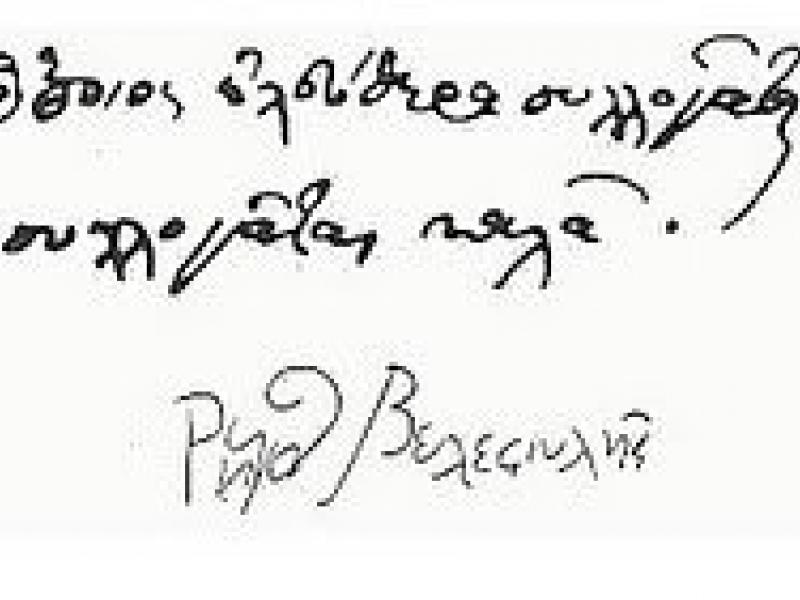 Ὅποιος ἐλεύθερα συλλογᾶται
συλλογᾶται καλά.
Ρήγας Βελεστινλῆς